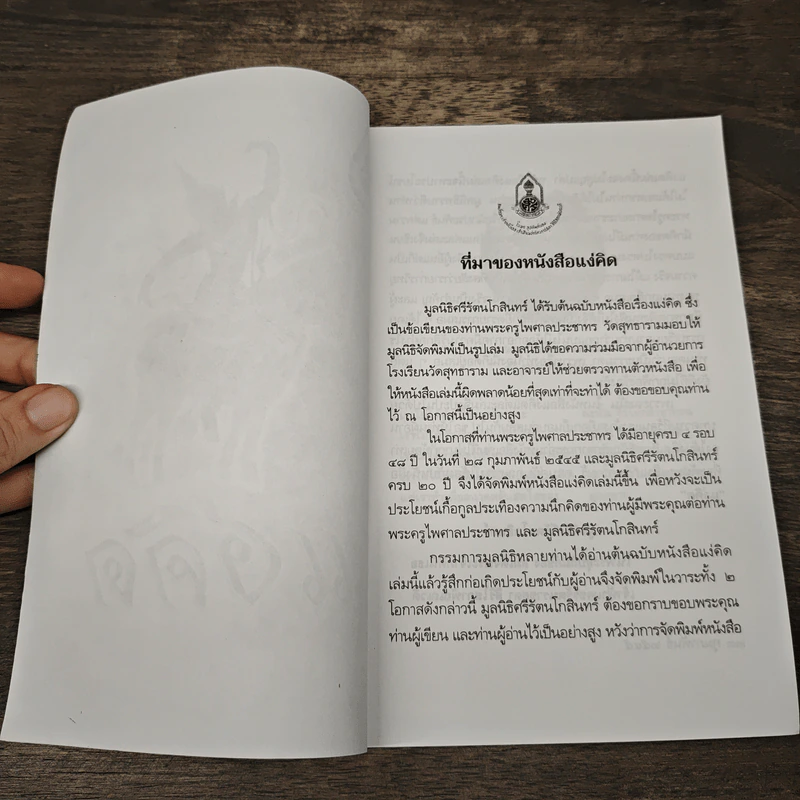 ที่มาของหนังสือแง่คิด
มูลนิธิศรีรัตนโกสินทร์ ได้รับต้นฉบับหนังสือเรื่องแง่คิด ซึ่ง
เป็นข้อเขียนของท่านพระครูไพศาลประชาทร วัดสุทธารามมอบให้
มูลนิธิจัดพิมพ์เป็นรูปเล่ม มูลนิธิได้ขอความร่วมมือจากผู้อำนวยการ
โรงเรียนวัดสุทธาราม และอาจารย์ให้ช่วยตรวจทานตัวหนังสือ เพื่อ
ให้หนังสือเล่มนี้ผิดพลาดน้อยที่สุดเท่าที่จะทำได้ ต้องขอขอบคุณท่าน
ไว้ ณ โอกาสนี้เป็นอย่างสูง
ในโอกาสที่ท่านพระครูไพศาลประชาทร ได้มีอายุครบ ๔ รอบ
๔๘ ปี ในวันที่ ๒๘ กุมภาพันธ์ ๒๕๔๕ และมูลนิธิศรีรัตนโกสินทร์
ครบ ๒๐ ปี จึงได้จัดพิมพ์หนังสือแง่คิดเล่มนี้ขึ้น เพื่อหวังจะเป็น
ประโยชน์เกื้อกูลประเทืองความนึกคิดของท่านผู้มีพระคุณต่อท่าน
พระครูไพศาลประชาทร และ มูลนิธิศรีรัตนโกสินทร์
กรรมการมูลนิธิหลายท่านได้อ่านต้นฉบับหนังสือแง่คิด
เล่มนี้แล้วรู้สึกก่อเกิดประโยชน์กับผู้อ่านจึงจัดพิมพ์ในวาระทั้ง ๒
โอกาสดังกล่าวนี้ มูลนิธิศรีรัตนโกสินทร์ ต้องขอกราบขอบพระคุณ
ท่านผู้เขียน และท่านผู้อ่านไว้เป็นอย่างสูง หวังว่าการจัดพิมพ์หนังสือ